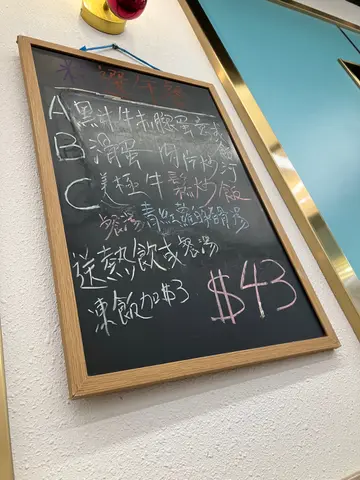 A 黑汁牛扒腸蛋意
B 滑蛋 肉片炒河
C 美極牛鬆炒飯
餐湯青紅蘿蔔豬骨湯
送熱飲或餐湯
凍飲加$3
$43